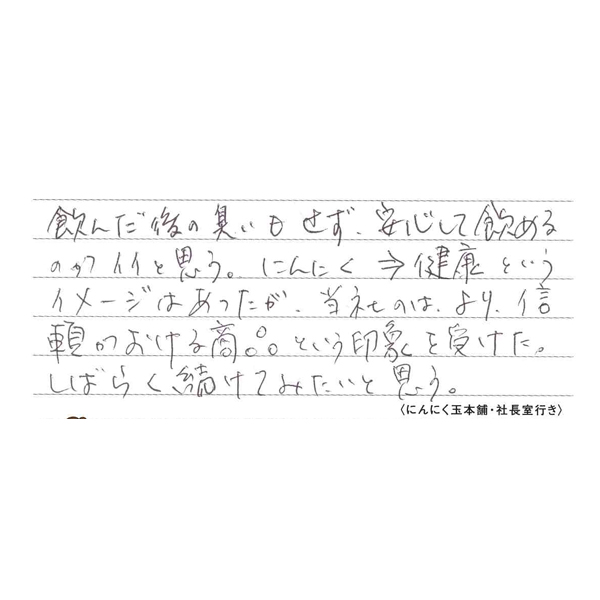 飲んだ後の臭いもせず、安心して飲める
のがイイと思う。にんにく⇒健康という
イメージはあったが、当社のは、より、信
頼のおける商品という印象を受けた。
しばらく続けてみたいと思う。
〈にんにく玉本舗・社長室行き〉